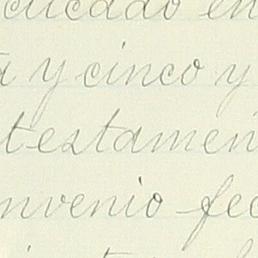 dicado en
a y cinco y
testamen
nvenio fec